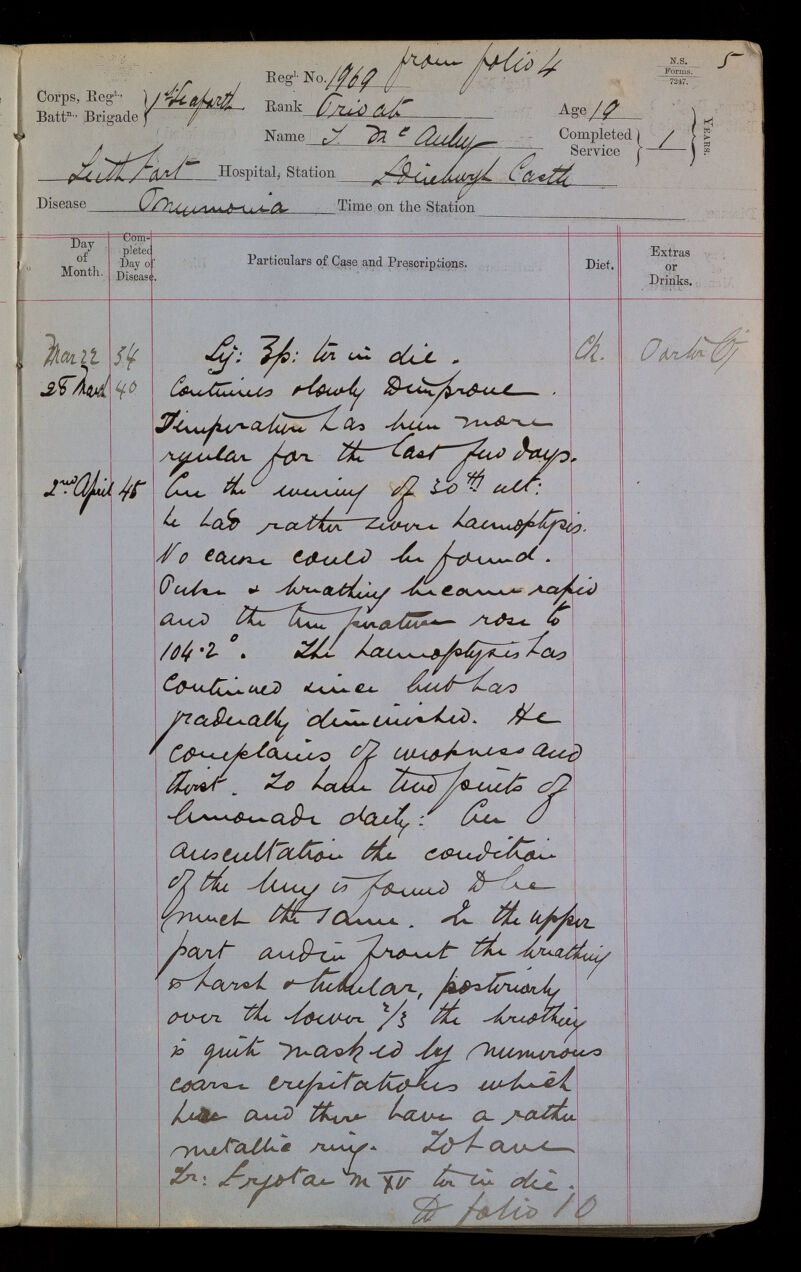 from folio 4
5
N.S.
Forms.
7247.
Regl. No. 1969
Corps, Regt.
Battn. Brigade } 1st Seaforth
Rank Private
Age 19
Name J. McAuley
Completed Service } 1 } YEARS.
Leith Fort Hospital, Station Edinburgh Castle
Disease Pneumonia Time on the Station
Day of Month. Completed Day of Disease. Particulars of Case and Prescriptions. Diet. Extras or Drinks.
Mar 22 34 ter in die. Ch. Porter
28 March 40 Continues slowly to improve.
Temperature has been more
regular for the last few days.
2nd April 45 On the evening of 30th ult:
he had rather severe haemoptysis.
No cause could be found.
Pulse & breathing became rapid
and the temperature rose to
104.2°. The haemoptysis has
continued since but has
gradually diminished. He
complains of weakness and
thirst. To have two pints of
lemonade daily: On
auscultation the condition
of the lung is found to be
much the same. In the upper
part and in front the breathing
is harsh & tubular, posteriorly
over the lower 2/3 the breathing
is quite masked by numerous
coarse crepitations which
here and there have a rather
metallic ring. To have
Tr: Ergotae m XV ter in die.
To folio 10